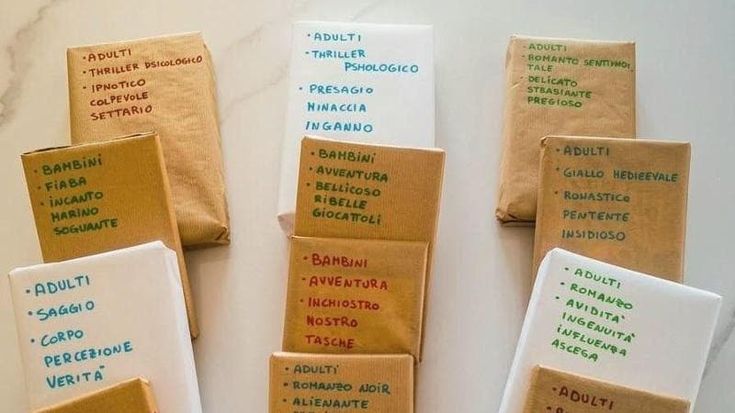 • ADULTI
• THRILLER PSICOLOGICO
• IPNOTICO
COLPEVOLE
SETTARIO
• ADULTI
• THRILLER
PSHOLOGICO
• PRESAGIO
MINACCIA
INGANNO
• ADULTI
• ROMANTO SENTIMOI
TALE
• DELICATO
STBASIANTE
PREGIOSO
• BAMBINI
• FIABA
• INCANTO
MARINO
SOGUANTE
• BAMBINI
• AVVENTURA
• BELLICOSO
RIBELLE
GIOCATTOLI
• ADULTI
• GIALLO MEDIEEVALE
• RONASTICO
PENTENTE
INSIDIOSO
• ADULTI
• SAGGIO
• CORPO
PERCEZIONE
VERITA'
• BAMBINI
• AVVENTURA
• INCHIOSTRO
NOSTRO
TASCHE
• ADULTI
• ROMANZO
• AVIDITA'
INGENUITA'
INFLUENZA
ASCEGA
• ADULTI
• ROMANZO NOIR
• ALIENANTE
• ADULTI